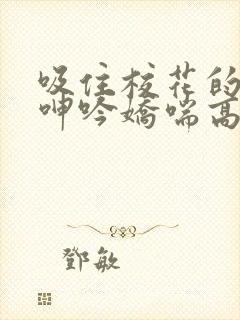 吸住校花的
呻吟娇喘高
鄧敏